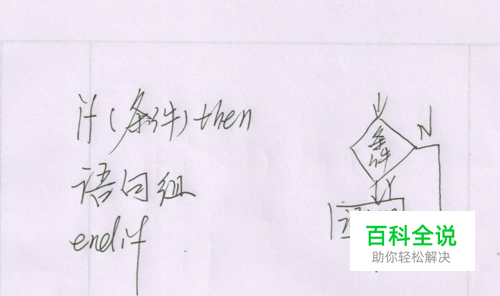 if (条件) then
语句组
endif
条件
N
Y
百科全说
助你轻松解决